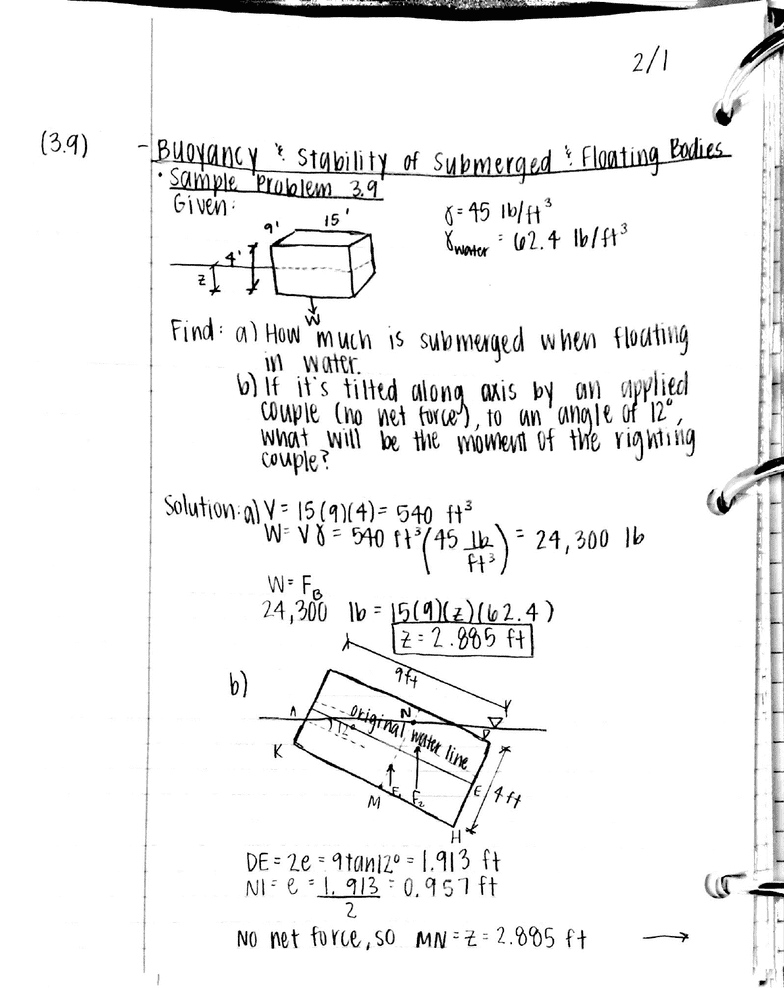 2/1
(3.9) - Buoyancy & Stability of Submerged & Floating Bodies
• Sample Problem 3.9
Given:
γ = 45 lb/ft³
γwater = 62.4 lb/ft³
9' 15'
4'
z
W
Find: a) How much is submerged when floating
in water.
b) If it's tilted along axis by an applied
couple (no net force), to an angle of 12°,
what will be the moment of the righting
couple?
Solution: a) V = 15(9)(4) = 540 ft³
W = Vγ = 540 ft³ (45 lb/ft³) = 24,300 lb
W = FB
24,300 lb = 15(9)(z)(62.4)
z = 2.885 ft
b)
9ft
A N
original water line
12°
K
M F₂ E 4ft
H
DE = 2e = 9tan12° = 1.913 ft
NI = e = 1.913/2 = 0.957 ft
No net force, so MN = z = 2.885 ft →